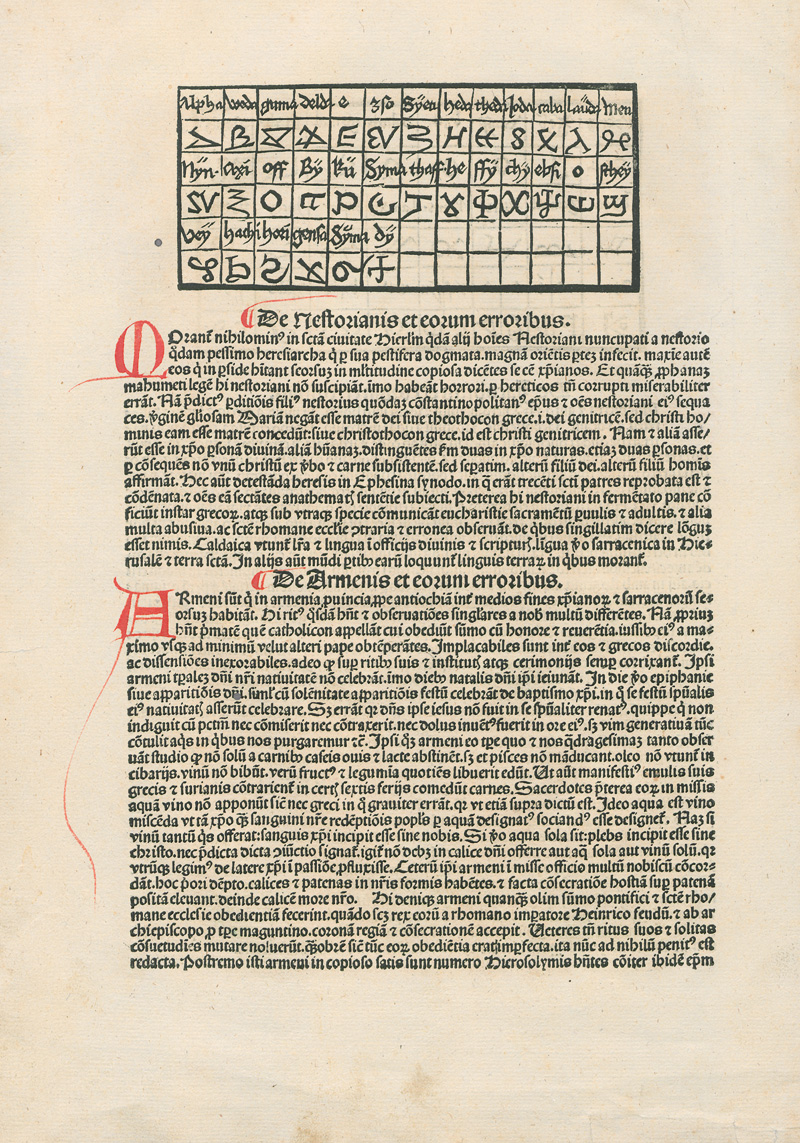 Alpha weda gama delda e zso Syeu heda theda Joda caba lauda Men
Nyn. Oxi off By Ru Syma thaff he ffy chy ebsi o sthey
vey hachi hori gensa Syma dy
De Nestorianis et eorum erroribus.
MOrant nihilominꝰ in sctā ciuitate Hierlm qdā alij hoīes Nestoriani nuncupati a nestorio
qdam pessimo heresiarcha q̄ ꝑ sua pestifera dogmata. magnā oriētis ꝑtez infecit. maxīe autē
eos q̄ in ꝑside hītant seorsuz in mltitudine copiosa dicētes se cē xp̄ianos. Et quāqꝫ ꝓphanaz
mahumeti legē hi nestoriani nō suscipiāt. īmo habeāt horrori. ꝑ hereticos tn̄ corrupti miserabiliter
errāt. Nā p̄dictꝰ ꝑditiōis filiꝰ nestorius quōdaz cōstantinopolitanꝰ ep̄us & oēs nestoriani eiꝰ sequa
ces. ꝟginē gl̄iosam Mariām negāt esse matrē dei siue theothocon grece. i. dei genitricē. sed christi ho/
minis eam esse matrē concedūt: siue christothocon grece. id est christi genitricem. Nam & aliā asse/
rūt esse in xp̄o ꝑsonā diuinā. aliā hūanaz. distinguētes ẜm duas in xp̄o naturas. etiaz duas ꝑsonas. et
ꝑ cōsequēs nō vnū christū ex ꝟbo & carne subsistentē. sed seꝑatim. alterū filiū dei. alterū filiū homīs
affirmāt. Hec aūt detestāda heresis in Ephesina synodo. in q̄ erāt trecēti sctī patres reprobata est &
cōdēnata. & oēs eā sectātes anathematꝭ sentētie subiecti. Preterea hi nestoriani in fermētato pane cō
ficiūt instar grecoꝝ. atqꝫ sub vtraqꝫ specie cōmunicāt eucharistie sacramētū ꝑuulis & adultis. & alia
multa abusiua. ac sctē rhomane ecclīe ꝯtraria & erronea obseruāt. de qbus singillatim dicere lōguꝫ
esset nimis. Caldaica vtunt̄ lr̄a & lingua ī officijs diuinis & scripturꝭ. līgua ꝟo sarracenica in Hie-
rusalē & terra sctā. In alijs aūt mūdi ꝑtibꝫ earū loquunt̄ linguis terraꝝ in qbus morant̄.
De Armenis et eorum erroribus.
ARmeni sūt q̄ in armenia ꝓuincia, ꝓpe antiochiā int̄ medios fines xp̄ianoꝝ & sarracenorū se-
orsuꝫ habitāt. Hi ritꝰ qsdā hn̄t & obseruatiōes singl̄ares a nob̄ multū differētes. Nā ꝓprius
hn̄t p̄matē quē catholicon appellāt cui obediūt sūmo cū honore & reuerētia. iussibꝫ eiꝰ a ma-
ximo vsqꝫ ad minimū velut alteri pape obtēperātes. Implacabiles sunt int̄ eos & grecos discordie.
ac dissensiōes inexorabiles. adeo ꝙ suꝑ ritibꝫ suis & institutꝭ atqꝫ cerimonijs semꝑ corrixant̄. Ipsi
armeni tꝑalez dn̄i nr̄i natiuitatē nō celebrāt. īmo diebꝫ natalis dn̄i ip̄i ieiunāt. In die ꝟo epiphanie
siue apparitiōis dn̄i. siml̄ cū solēnitate apparitiōis festū celebrāt de baptismo xp̄i. in q̄ se festū spūalis
eiꝰ natiuitatꝭ asserūt celebrare. Sꝫ errāt qꝫ dn̄s ipse iesus nō fuit in se spūaliter renatꝰ. quippe q̄ non
indiguit cū pctm̄ nec cōmiserit nec cōtraxerit. nec dolus inuētꝰ fuerit in ore eiꝰ. sꝫ vim generatiuā tūc
cōtulit aqs in qbus nos purgaremur &c̄. Ipsi qꝫ armeni eo tꝑe quo & nos qdragesimaꝫ tanto obser
uāt studio ꝙ nō solū a carnibꝫ caseis ouis & lacte abstinēt. sꝫ et pisces nō māducant. oleo nō vtunt̄ in
cibarijs. vinū nō bibūt. verū fructꝰ & legumīa quotiēs libuerit edūt. Ut aūt manifesti emulis suis
grecis & surianis cōtrarient̄ in certꝭ sextis ferijs comedūt carnes. Sacerdotes p̄terea eoꝝ in missis
aquā vino nō apponūt sic̄ nec greci in q̄ grauiter errāt. qꝫ vt etiā supra dictū est. Ideo aqua est vino
miscēda vt tā xp̄o qꝫ sanguini nr̄e redēptiōis popl̄s ꝑ aquā designatꝰ sociandꝰ esse designet̄. Naꝫ si
vinū tantū qs offerat: sanguis xp̄i incipit esse sine nobis. Si ꝟo aqua sola sit: plebs incipit esse sine
christo. nec p̄dicta dicta ꝯiūctio signat̄. igit̄ nō debꝫ in calice dn̄i offerre aut aq̄ sola aut vinū solū. qꝫ
vtrūqꝫ legimꝰ de latere xp̄i ī passiōe, ꝓfluxisse. Ceterū ip̄i armeni ī misse officio multū nobiscū cōcor-
dāt. hoc p̄ori dēpto. calices & patenas in nr̄is formis habētes. & facta cōsecratiōe hostiā suꝑ patenā
positā eleuant. deinde calicē more nr̄o. Hi deniqꝫ armeni quāqꝫ olim sūmo pontifici & sctē rho/
mane ecclesie obedientiā fecerint. quādo scꝫ rex eorū a rhomano imꝑatore Heinrico feudū. & ab ar
chiepiscopo, ꝓ tꝑe maguntino. coronā regiā & cōsecrationē accepit. Ueteres tn̄ ritus suos & solitas
cōsuetudīes mutare noluerūt. qꝫobrē sic̄ tūc eoꝝ obediētia erat imꝑfecta. ita nūc ad nihilū penitꝰ est
redacta. Postremo isti armeni in copioso satis sunt numero Hierosolymis hn̄tes cōiter ibidē ep̄m